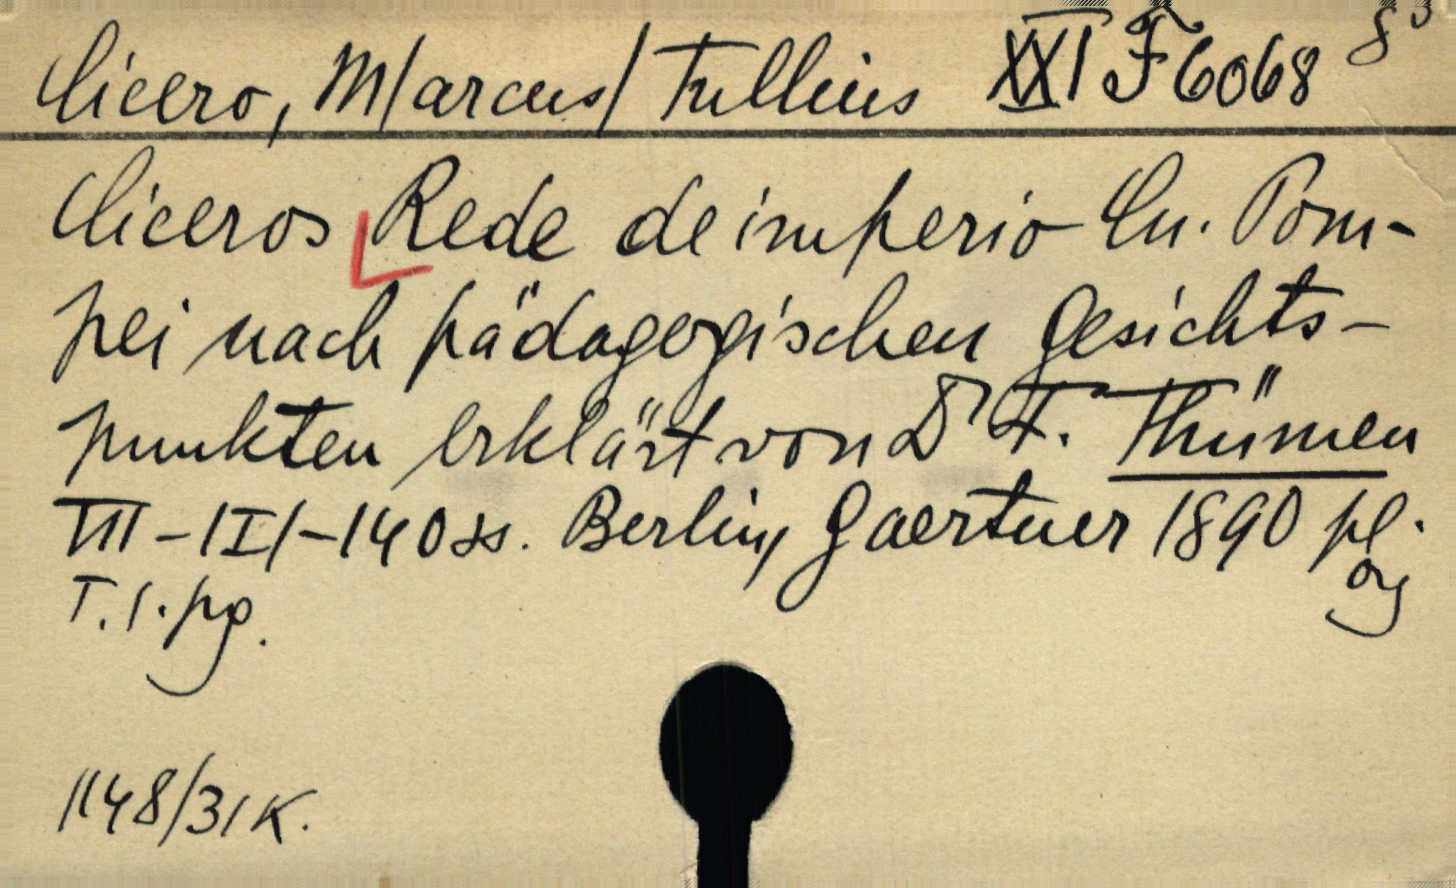 Cicero, M/arcus/ Tullius XXI F 6068 8°
Ciceros Rede de imperio Cn. Pom-
pei nach pädagogischen Gesichts-
punkten erklärt von Dr F. Thümen
VII-/I/-140 ss. Berlin, Gaertner 1890 pł.
org
T. 1. pg.
1148/31 K.